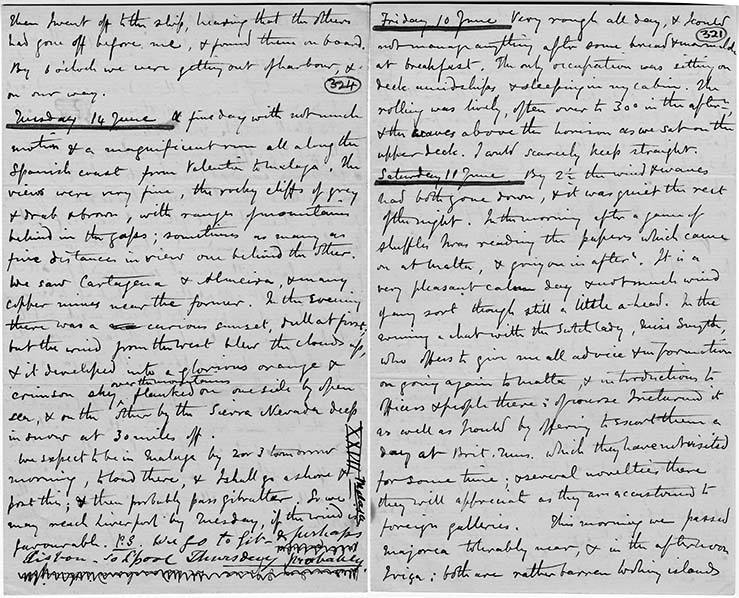 then I went off to the ship, hearing that the others
had gone off before me, & found them on board.
By 6 o'clock we were getting out of harbour, &
on our way.
324
Tuesday 14 June A fine day with not much
motion & a magnificent run all along the
Spanish coast from Valentia to Malaga. The
views were very fine, the rocky cliffs of grey
& drab & brown, with ranges of mountains
behind in the gaps; sometimes as many as
five distances in view one behind the other.
We saw Cartagena & Almeira, & many
copper mines near the former. In the evening
there was a curious sunset, dull at first,
but the wind from the west blew the clouds up,
& it developed into a glorious orange &
crimson sky over the mountains flanked on one side by open
sea, & on the other by the Sierra Nevada deep
in snow at 30 miles off.
We expect to be in Malaga by 2 or 3 tomorrow
morning, to load there, & I shall go ashore &
post this; & then probably pass Gibraltar. So we
may reach Liverpool by Tuesday, if the wind is
favourable. P.S. We go to Gib. & perhaps
Lisbon. So L'pool Thursday probably.
XXVIII Malaga
Friday 10 June Very rough all day, & I could
321
not manage anything after some bread & marmalade
at breakfast. The only occupation was sitting on
deck midships & sleeping in my cabin. The
rolling was lively, often over to 30° in the aftern
& the waves above the horizon as we sat on the
upper deck. I could scarcely keep straight.
Saturday 11 June By 2½ the wind & waves
had both gone down, & it was quiet the rest
of the night. In the morning after a game of
shuffles I was reading the papers which came
on at Malta, & going on in after. It is a
very pleasant calm day & not much wind
of any sort though still a little ahead. In the
evening a chat with the Scotch lady, Miss Smyth,
who offers to give me all advice & information
on going again to Malta, & introductions to
officers & people there; of course I returned it
as well as I could by offering to escort them a
day at Brit. Mus. which they have not visited
for some time; & several novelties there
they will appreciate as they are accustomed to
foreign galleries. This morning we passed
Majorca tolerably near, & in the afternoon
Iviça: both are rather barren looking islands